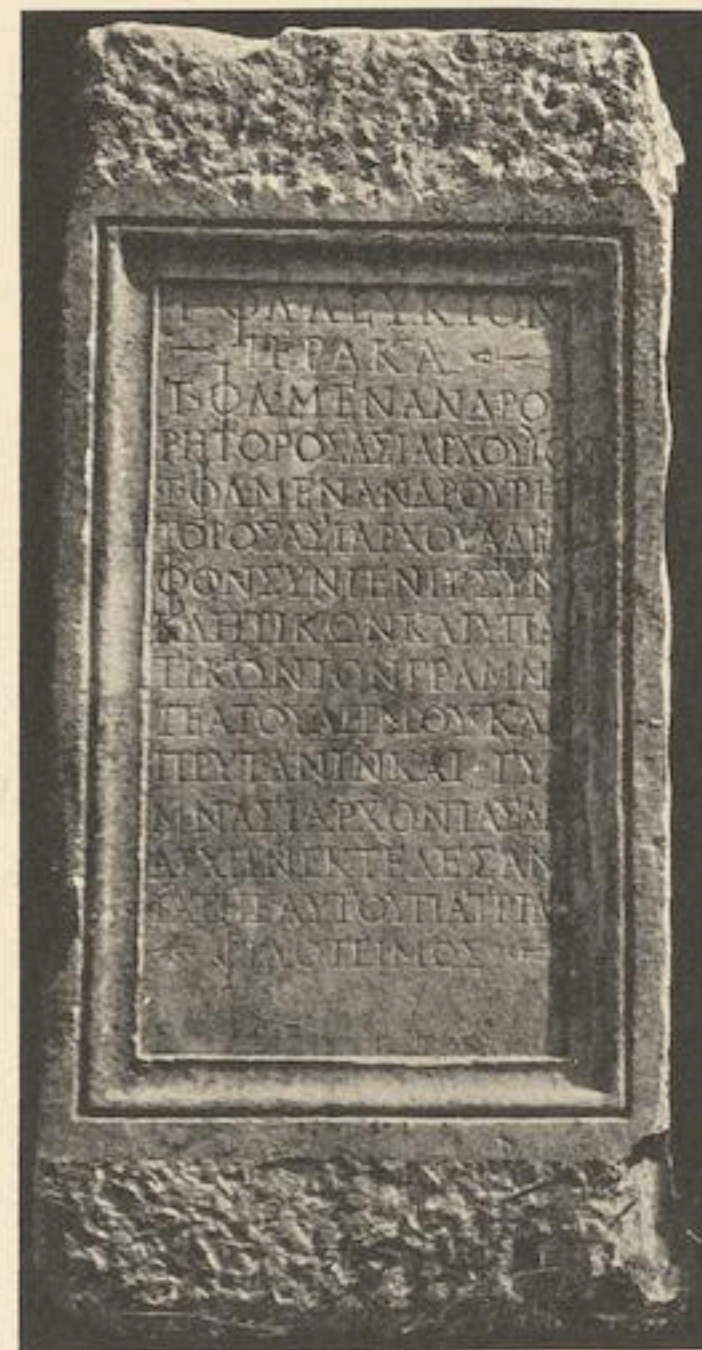 Τ ΦΛ ΛΕΥΚΙΟΝ
ΙΕΡΑΚΑ
Τ ΦΛ ΜΕΝΑΝΔΡΟΥ
ΡΗΤΟΡΟΣ ΑΣΙΑΡΧΟΥ ΥΙΟΝ
Τ ΦΛ ΜΕΝΑΝΔΡΟΥ ΡΗ
ΤΟΡΟΣ ΑΣΙΑΡΧΟΥ ΑΔΕΛ
ΦΟΝ ΣΥΝΓΕΝΗ ΣΥΝ
ΚΛΗΤΙΚΩΝ ΚΑΙ ΥΠΑ
ΤΙΚΩΝ ΤΟΝ ΓΡΑΜΜΑ
ΤΕΑ ΤΟΥ ΔΗΜΟΥ ΚΑΙ
ΠΡΥΤΑΝΙΝ ΚΑΙ ΓΥ
ΜΝΑΣΙΑΡΧΟΝ ΠΑΣΑΝ
ΑΡΧΗΝ ΕΚΤΕΛΕΣΑΝ
ΤΑ ΤΗ ΕΑΥΤΟΥ ΠΑΤΡΙΔΙ
ΦΙΛΟΤΕΙΜΟΣ